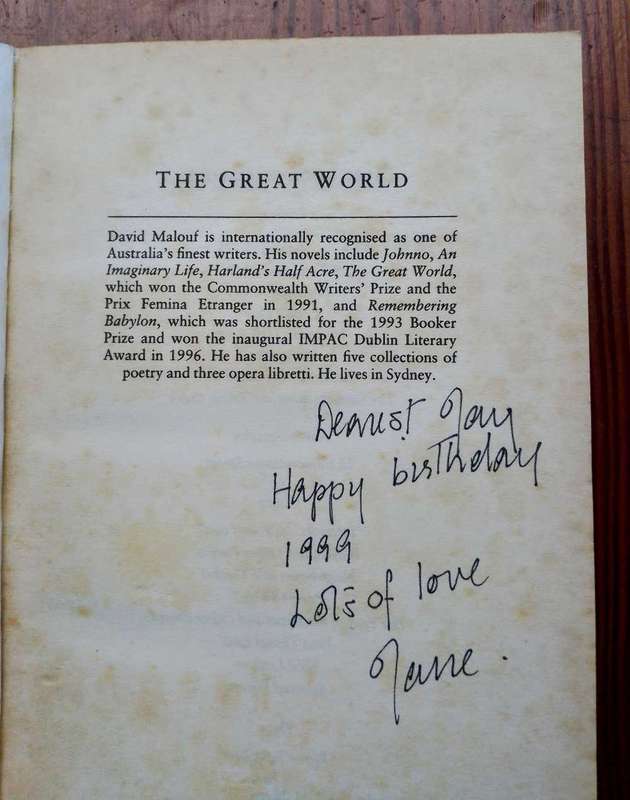 THE GREAT WORLD
David Malouf is internationally recognised as one of
Australia's finest writers. His novels include Johnno, An
Imaginary Life, Harland's Half Acre, The Great World,
which won the Commonwealth Writers' Prize and the
Prix Femina Etranger in 1991, and Remembering
Babylon, which was shortlisted for the 1993 Booker
Prize and won the inaugural IMPAC Dublin Literary
Award in 1996. He has also written five collections of
poetry and three opera libretti. He lives in Sydney.
Dearest
Happy birthday
1999
Lots of love